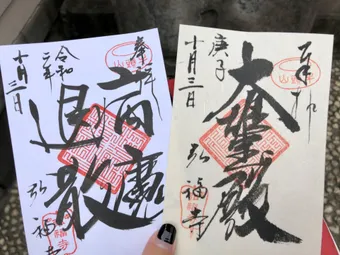 奉拝
病魔
退散
令和二年
十月三日
弘福寺
奉拝
大雄寳殿
庚子
十月三日
弘福寺